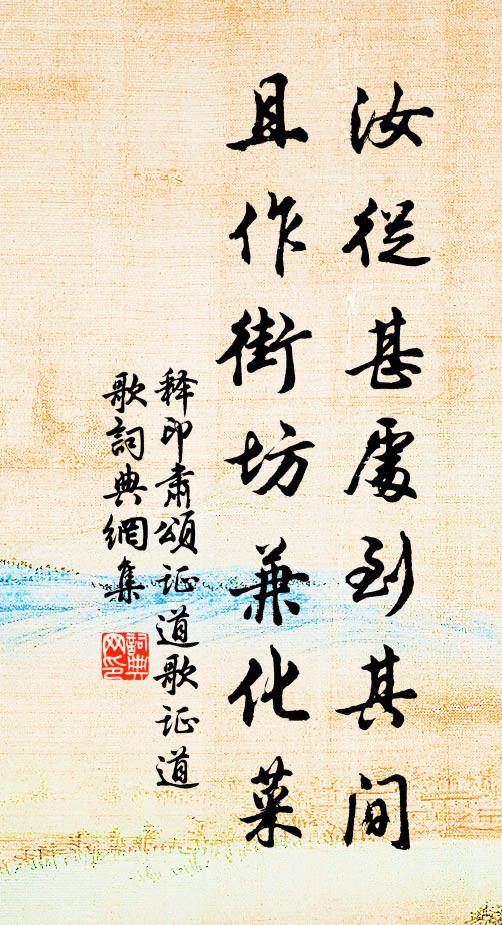 汝從甚處到其間
且作街坊兼化菜
释印肅頌证道歌证道
歌詞典網集
詞典网印